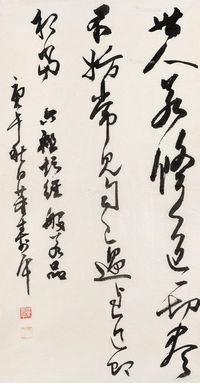 世人若修道一切尽
不妨常见自己过与道即
相当
六祖坛经般若品
庚午秋日